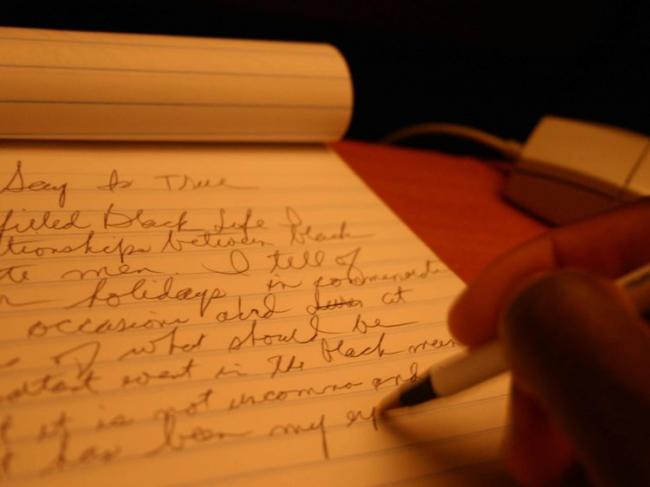 Say Is True
filled Black Life
tionships between black
te men. I tell of
holidays in commemorat
occasions and at
s of what should be
ortant event in the black men
t it is not uncommon and
t has been my ex